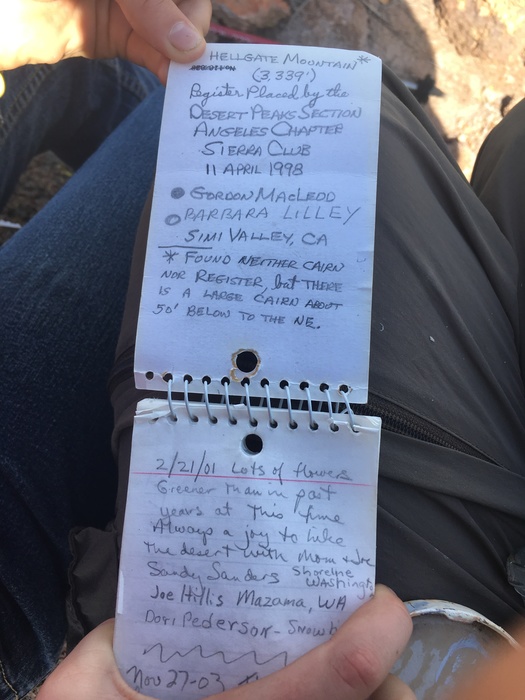 HELLGATE MOUNTAIN*
(3,339')
Register Placed by the
DESERT PEAKS SECTION
ANGELES CHAPTER
SIERRA CLUB
11 APRIL 1998
GORDON MACLEOD
BARBARA LILLEY
SIMI VALLEY, CA
* FOUND NEITHER CAIRN
NOR REGISTER, but THERE
IS A LARGE CAIRN ABOUT
50' BELOW TO THE NE.
2/21/01 Lots of flowers
Greener than in past
years at this time
Always a joy to hike
the desert with Mom + Joe
Sandy Sanders Shoreline
Washingt
Joe Hillis Mazama, WA
Dori Pederson - Snowb
Nov 27-03